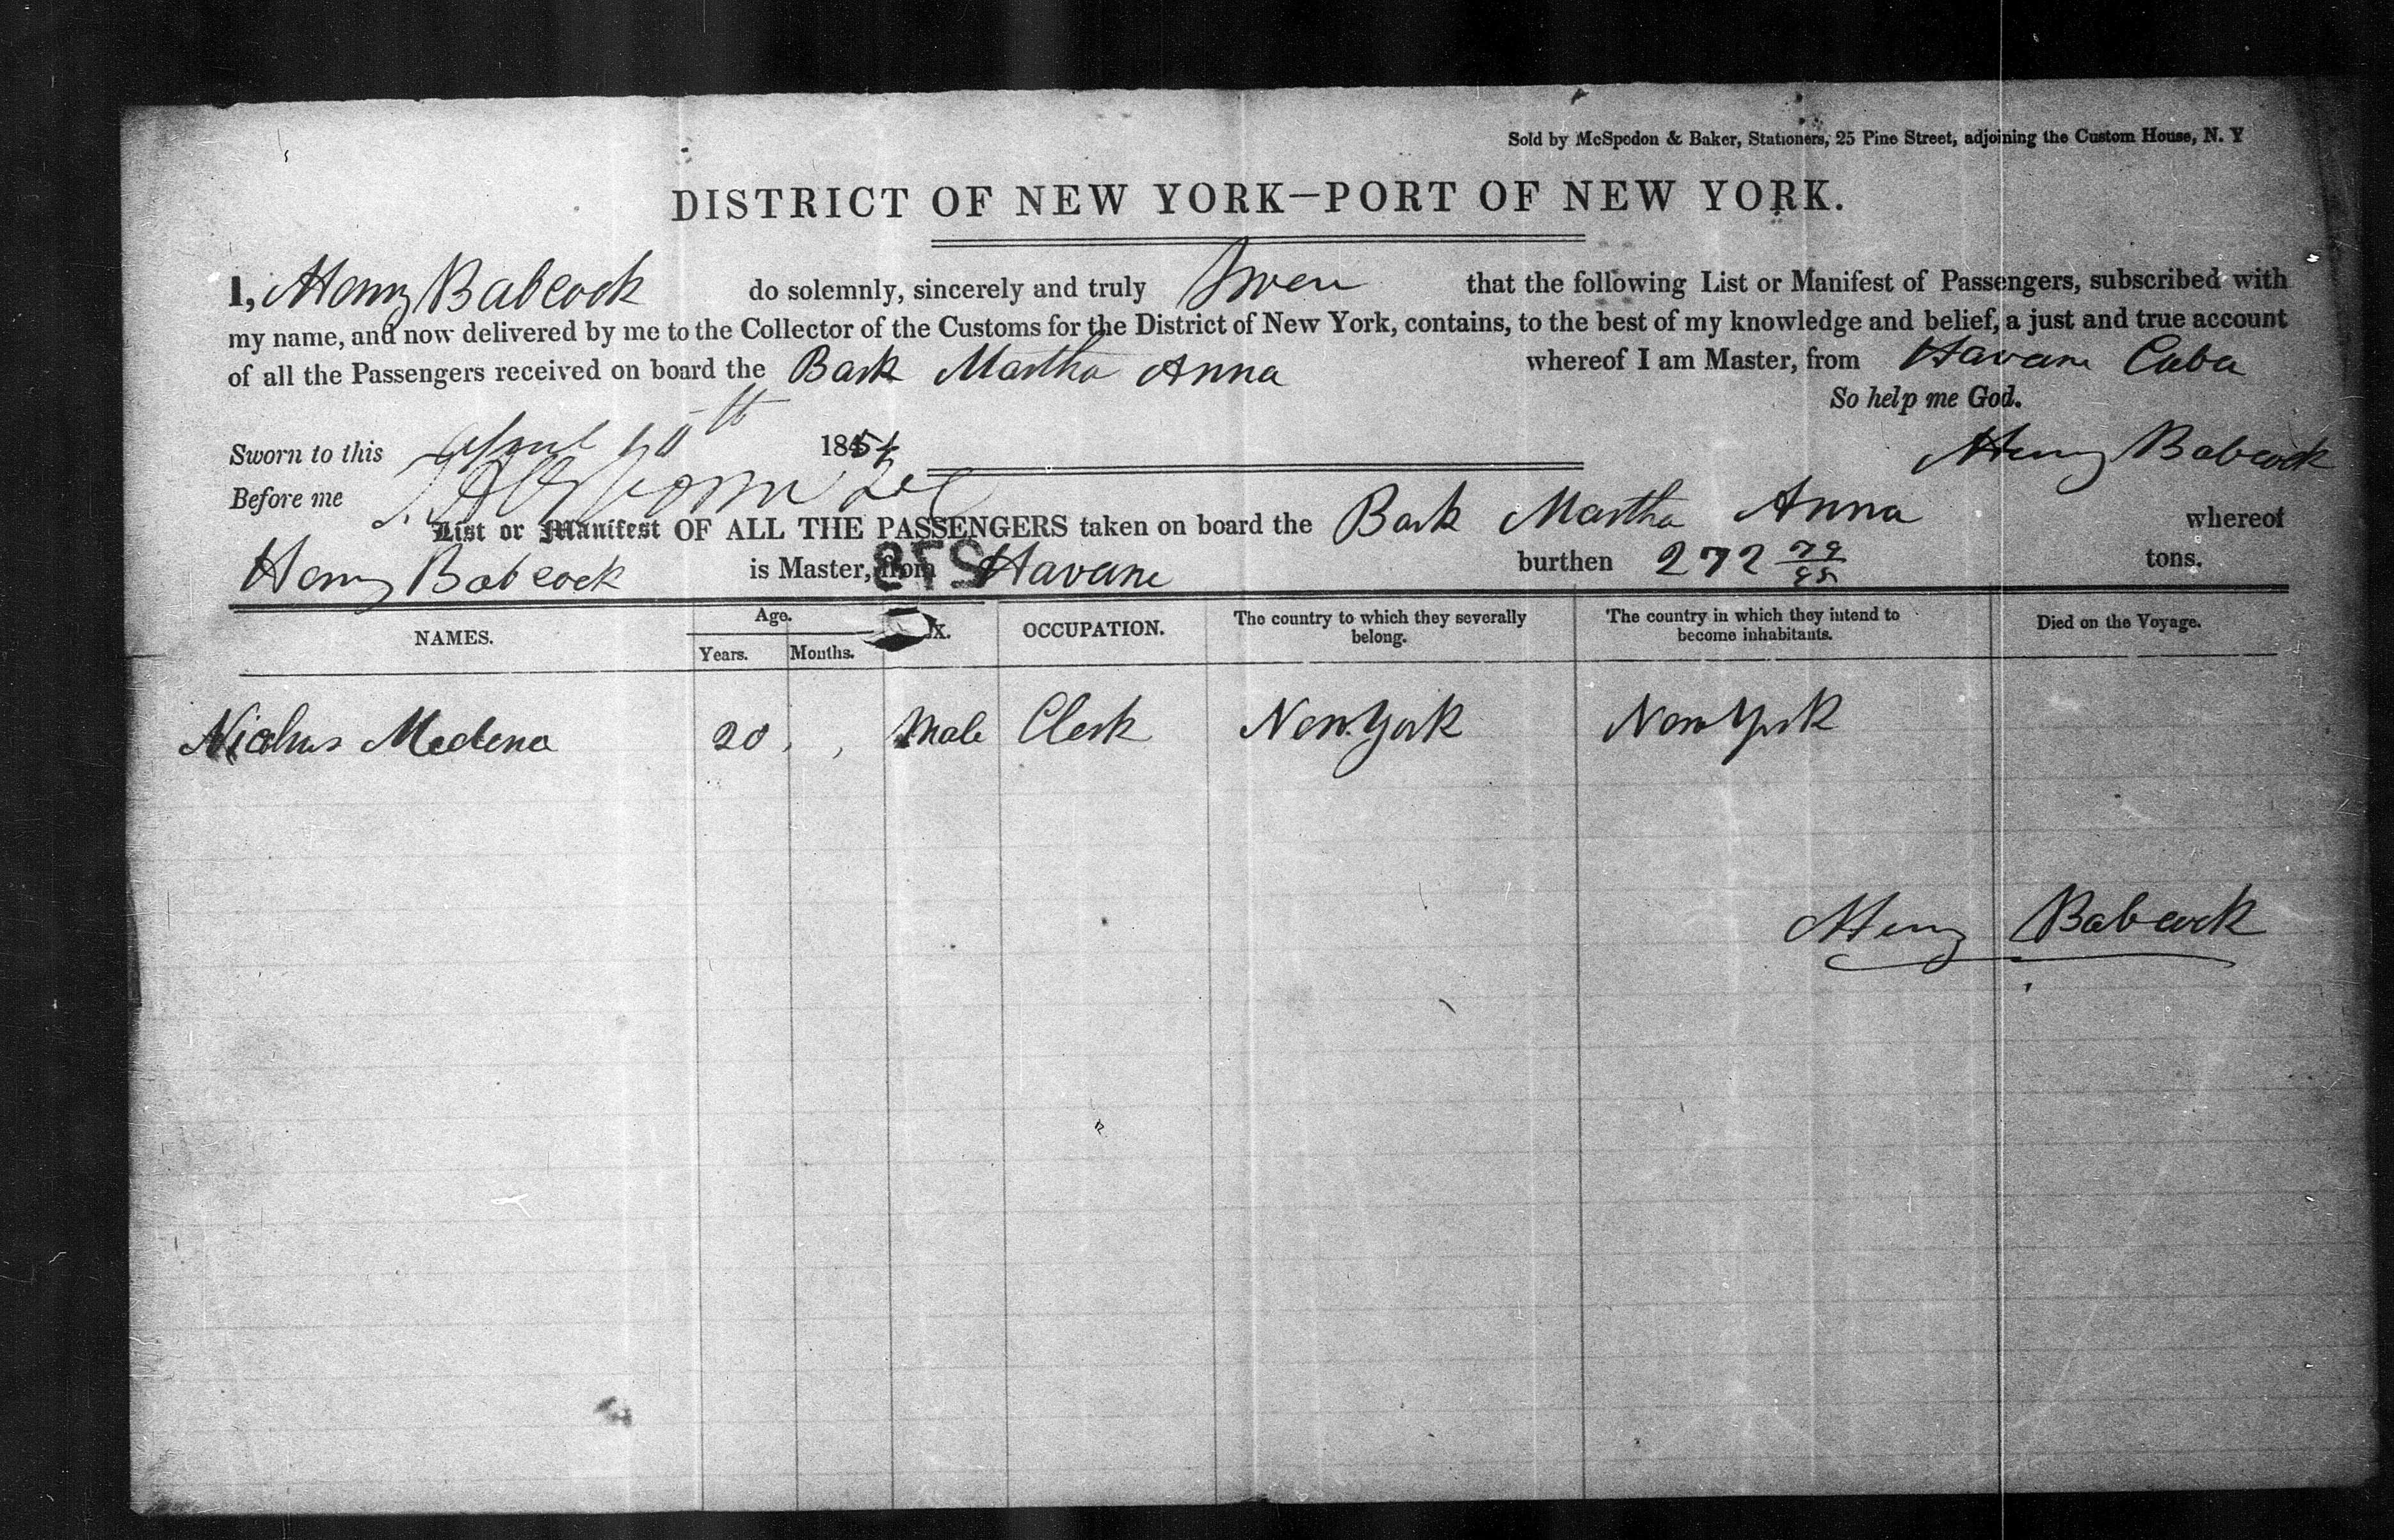 Sold by McSpedon & Baker, Stationers, 25 Pine Street, adjoining the Custom House, N. Y
DISTRICT OF NEW YORK—PORT OF NEW YORK.
I, Henry Babcock do solemnly, sincerely and truly Swere that the following List or Manifest of Passengers, subscribed with
my name, and now delivered by me to the Collector of the Customs for the District of New York, contains, to the best of my knowledge and belief, a just and true account
of all the Passengers received on board the Bark Martha Anna whereof I am Master, from Havana Cuba
So help me God.
Sworn to this April 10th 1854 Henry Babcock
Before me
List or Manifest OF ALL THE PASSENGERS taken on board the Bark Martha Anna whereof
Henry Babcock is Master, from Havana burthen 272 79/95 tons.
273
NAMES. Age. Years. Months. X. OCCUPATION. The country to which they severally belong. The country in which they intend to become inhabitants. Died on the Voyage.
Nicolus Medena 20 Male Clerk New York New York
Henry Babcock